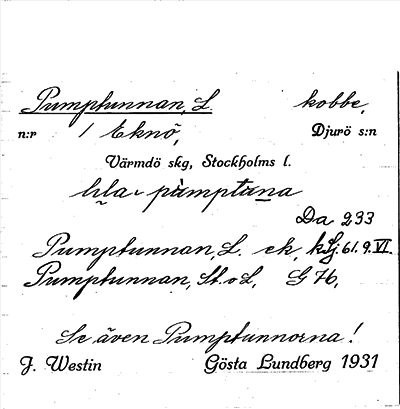 Pumptunnan, L. kobbe,
n:r 1 Eknö, Djurö s:n
Värmdö skg, Stockholms l.
lila- pùmptuna
Da 233
Pumptunnan, L. ek, kLj. 61.9.VI.
Pumptunnan, St. o L, G 76,
Se även Pumptunnorna!
J. Westin Gösta Lundberg 1931